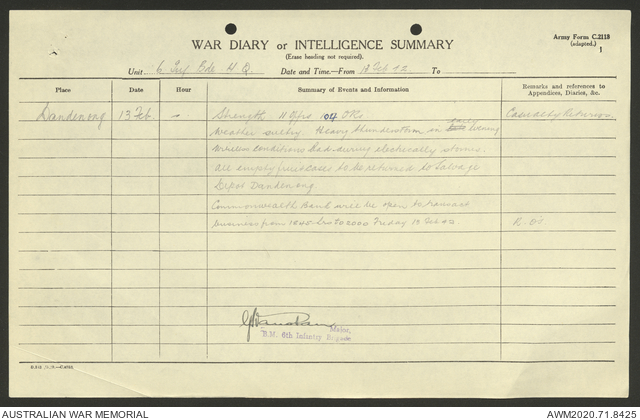 Army Form C.2118
(adapted.)
1
WAR DIARY or INTELLIGENCE SUMMARY
(Erase heading not required).
Unit 6 Inf Bde H.Q. Date and Time—From 13 Feb 42 To
Place Date Hour Summary of Events and Information Remarks and references to
Appendices, Diaries, &c.
Dandenong 13 Feb - Strength 11 Offrs 104 ORs Casualty Returns
Weather sultry. Heavy thunderstorm in early evening
Wireless conditions bad during electrically storms.
All empty fruit cases to be returned to Salvage
Depot Dandenong
Commonwealth Bank will be open to transact
business from 1845 hrs to 2000 Friday 13 Feb 42. R.O.
Major,
B.M. 6th Infantry Brigade
AUSTRALIAN WAR MEMORIAL
AWM2020.71.8425